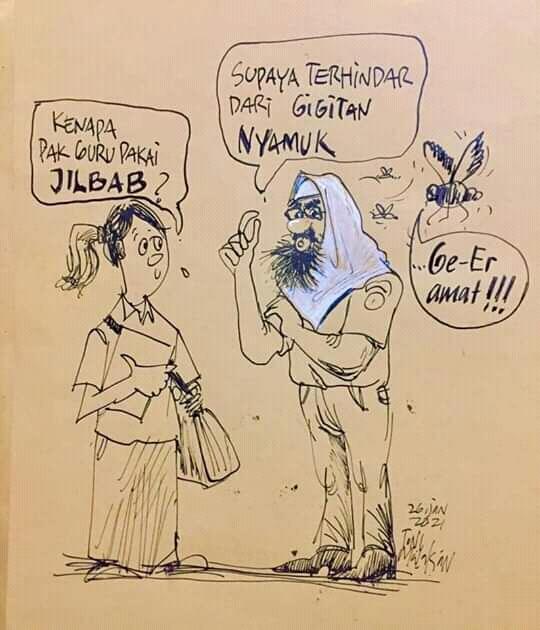 KENAPA
PAK GURU PAKAI
JILBAB?
SUPAYA TERHINDAR
DARI GIGITAN
NYAMUK
...Ge-Er
amat!!!
26 JAN
2021